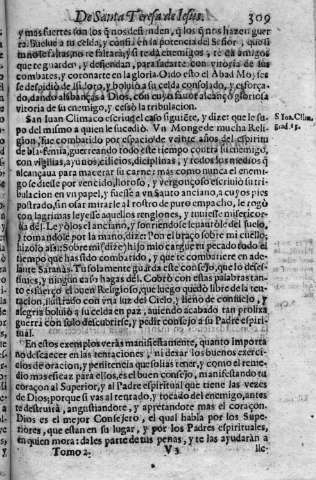 De Santa Teresa de Iesus. 309
y mas fuertes son los q̃ nos defienden, q̃ los q̃ nos hazen guerra.
Buelue a tu celda, y confia en la potencia del Señor, q̃ quosi
no le falas no te faltarà, y si te dà enemigos, te dà amigos
que te guarden, y defiendan, para sacarte con vitoria de tus
combates, y coronarte en la gloria. Oìdo esto el Abad Mo,sese
se despidiò de Isidoro, y boluiò a su celda consolado, y esforçado,
dando alabanças a Dios, con cuyo fauor alcançò gloriosa
vitoria de su enemigo, y cessò la tribulacion.
San Iuan Climaco escriue el caso siguiẽte, y dize que le supo
del mismo a quien le sucediò. Vn Monge de mucha Religion,
fue combatido por espacio de veinte años del espiritu
de blasfemia, querreando todo este tiempo contra su enemigo,
con vigilias, ayunos, cilicios, diciplinas, y todos los medios q̃
alcançaua para macerar su carne: mas como nunca el enemigo
se diesse por vencido, lloroso, y vergonçoso escriuiò su tribulacion
en vn papel, y fuesse a vn Santo anciano, a cuyos pies
postrado, sin osar mirarle al rostro de puro empacho, le rogò
con lagrimas leyesse aquellos renglones, y tuuiesse misericordia
del. Leyòlos el anciano, y sonriendose leuantòle del suelo,
y tomandole por la mano, dize: Pon el braço sobre mi cuello,
hizolo assi: Sobre mi (dize) hijo mio cargue tu pecado todo el
tiempo que has sido combatido, y que te combatiere en adelante
Satanàs. Tu solamente guarda este consejo, que lo desestimes,
y ningun caso hagas del. Cobrò con estas palabras tanto
esfuerço el buen Religioso, que luego quedò libre de la tentacion,
ilustrado con vna luz del Cielo, y lleno de consuelo, y
alegria boluiò a su celda en paz, auiendo acabado tan prolixa
guerra con solo descubrirse, y pedir consejo a su Padre espiritual.
En estos exemplos veràs manifiestamente, quanto importa
no descaecer en las tentaciones, ni dexar los buenos exercicios
de oracion, y penitencia que solias tener, y como el remedio
mas eficaz para ellos, es el buen consejo, manifestando tu
coraçon al Superior, y al Padre espiritual que tiene las vezes
de Dios; porque si vas al tentado, y tocado del enemigo, antes
te destruirà, angustiandore, y apretandote mas el coraçon.
Dios es el mejor Consejero, el qual habla por los Superiores,
que estàn en su lugar, y por los Padres espirituales,
en quien mora: dales parte de tus penas, y te las ayudaràn a
Tomo 2. V 3 lle-
S. Ioa. Clim.
grad. 23.